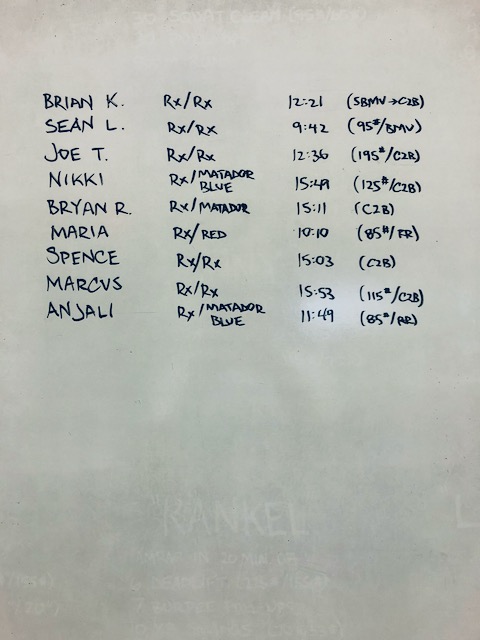 BRIAN K. Rx/Rx 12:21 (5BMV→C2B)
SEAN L. Rx/Rx 9:42 (95#/BMV)
JOE T. Rx/Rx 12:36 (195#/C2B)
NIKKI Rx/MATADOR BLUE 15:49 (125#/C2B)
BRYAN R. Rx/MATADOR 15:11 (C2B)
MARIA Rx/RED 10:10 (85#/RR)
SPENCE Rx/Rx 15:03 (C2B)
MARCUS Rx/Rx 15:53 (115#/C2B)
ANJALI Rx/MATADOR BLUE 11:49 (85#/RR)
"RANKEL